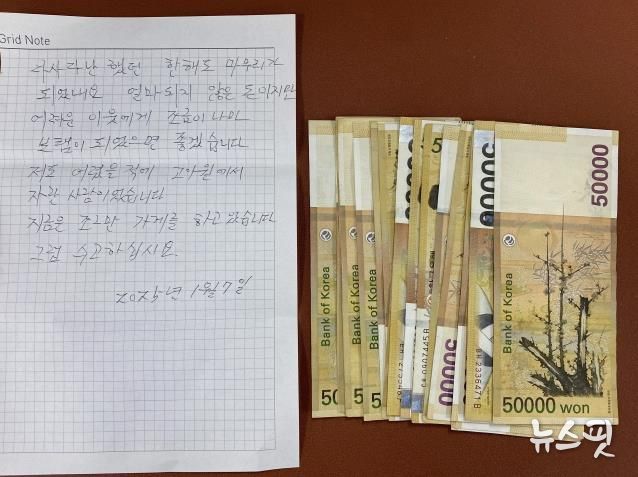 Grid Note
다사다난 했던 한해도 마무리가
되었내요 얼마되지 않은 돈이지만
어려운 이웃에게 조금이나마
보탬이 되었으면 좋겠습니다
저도 어렸을 적에 고아원에서
자란 사람이었습니다
지금은 조그만 가게를 하고 있습니다
그럼 수고하십시요.
2025년 1월 7일
50000
Bank of Korea
Bank of Korea
Bank of Korea
Bank of Korea
50000
50000
0907445B
2336471B
50000 won
뉴스핏